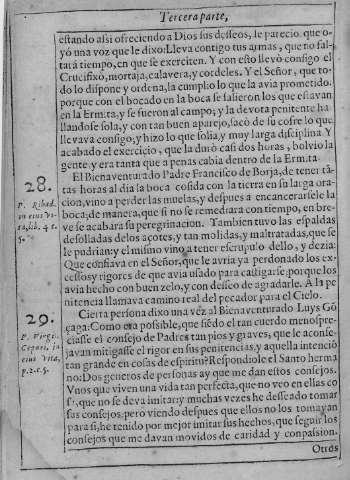 Tercera parte,
estando assi ofreciendo a Dios sus desseos, le parecio que o-
yó una voz que le dixo: Lleva contigo tus armas, que no fal-
tará tiempo, en que se exerciten. Y con esto llevó consigo el
Crucifixo, mortaja, calavera, y cordeles. Y el Señor, que to-
do lo dispone y ordena, la cumplio lo que la avia prometido.
porque con el bocado en la boca se salieron los que estavan
en la Ermita, y se fueron al campo; y la devota penitente ha
llandose sola, y con tan buen aparejo, sacó de su cofre lo que
llevava consigo, y hizo lo que solia, y muy larga disciplina. Y
acabado el exercicio, que la duró casi dos horas, bolvio la
gente, y era tanta que a penas cabia dentro de la Ermita.
28.
P. Ribad.
in eius vi-
ta, lib. 4 c.
5.
El Bienaventurado Padre Francisco de Borja, de tener tã-
tas horas al dia la boca cosida con la tierra en su larga ora-
cion, vino a perder las muelas, y despues a encancerarsele la
boca; de manera, que si no se remediara con tiempo, en bre-
ve se acabara su peregrinacion. Tambien tuvo las espaldas
desolladas de los açotes, y tan molidas, y maltratadas, que se
le pudrian: y el mismo vino a tener escrupulo dello, y dezia:
Que confiava en el Señor, que le avria ya perdonado los ex-
cessos, y rigores de que avia usado para castigarse, porque los
avia hecho con buen zelo, y con desseo de agradarle. A la pe
nitencia llamava camino real del pecador para el Cielo.
29.
P. Virgi.
Cepari, in
eius vita,
p. 2. c. 5.
Cierta persona dixo una vez al Bienaventurado Luys Gõ
çaga: Como era possible, que siẽdo el tan cuerdo menospre-
ciasse el consejo de Padres tan pios y graves, que le aconse-
javan mitigasse el rigor en sus penitencias, y aquella intenciõ
tan grande en cosas de espiritu? Respondiole el Santo herma
no: Dos generos de personas ay que me dan estos consejos.
Unos que viven una vida tan perfecta, que no veo en ellas co
sa, que no se deva imitar: y muchas vezes he desseado tomar
sus consejos; pero viendo despues que ellos no los tomavan
para si, he tenido por mejor imitar sus hechos, que seguir los
consejos que me davan movidos de caridad y conpassion.
Otros